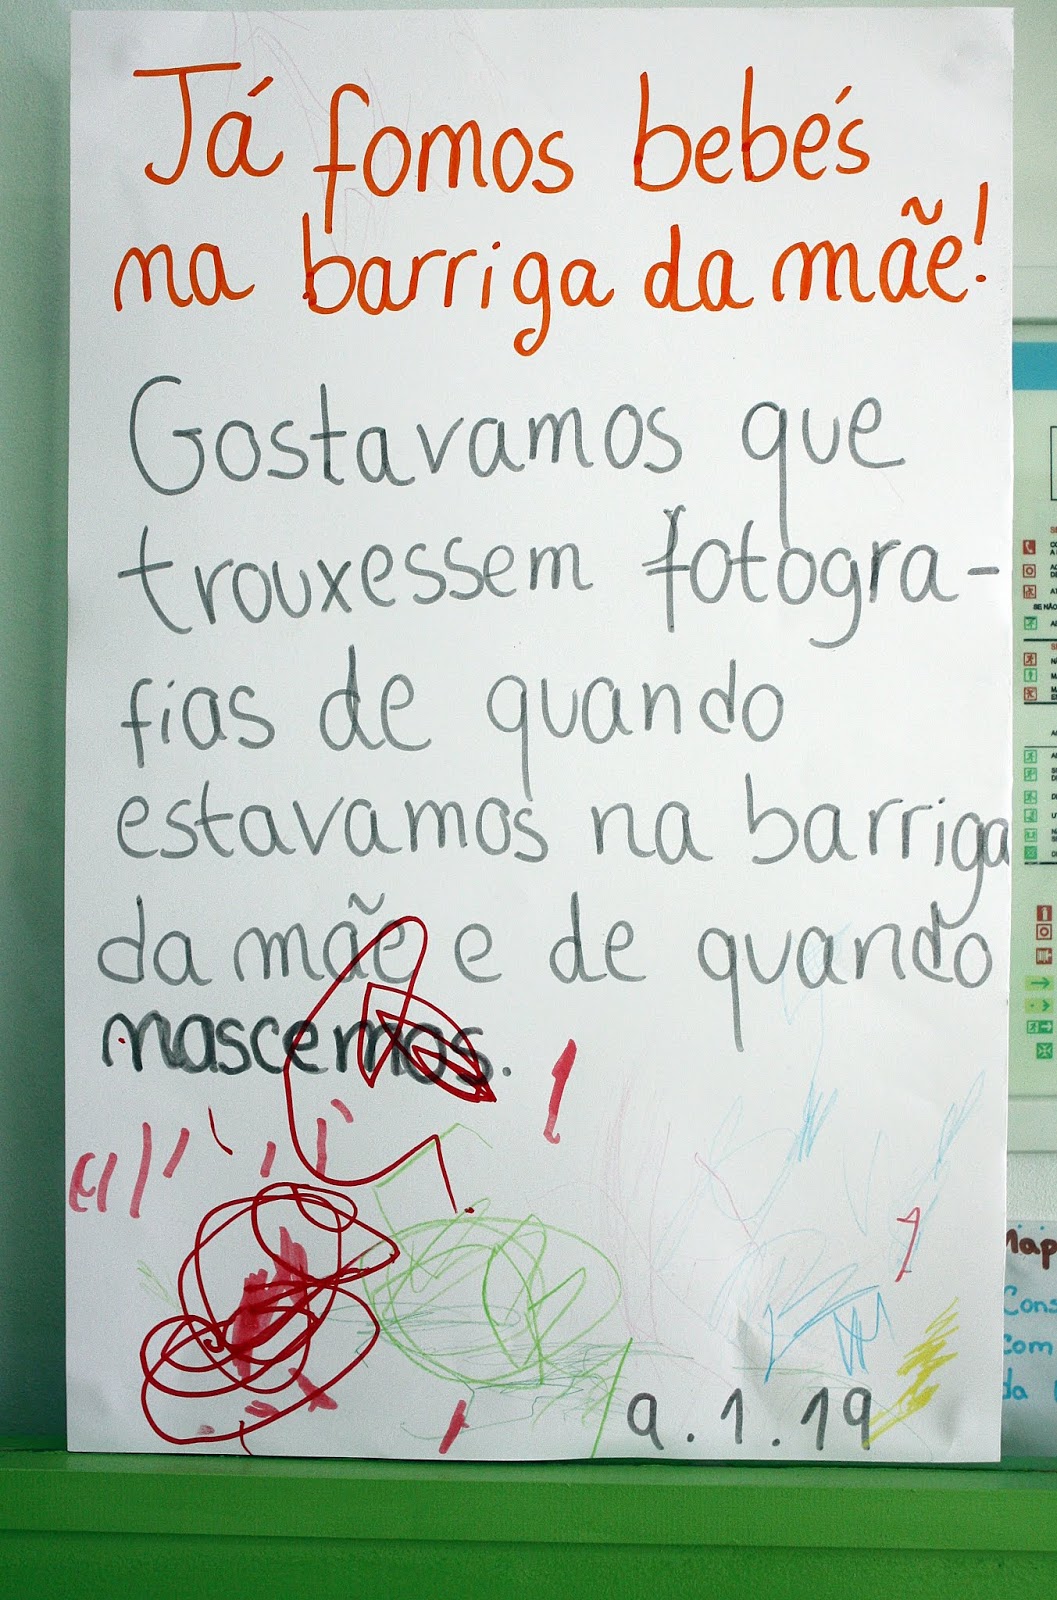 Já fomos bebés
na barriga da mãe!
Gostavamos que
trouxessem fotogra-
fias de quando
estavamos na barriga
da mãe e de quando
nascemos.
9.1.19
Cons
com
da